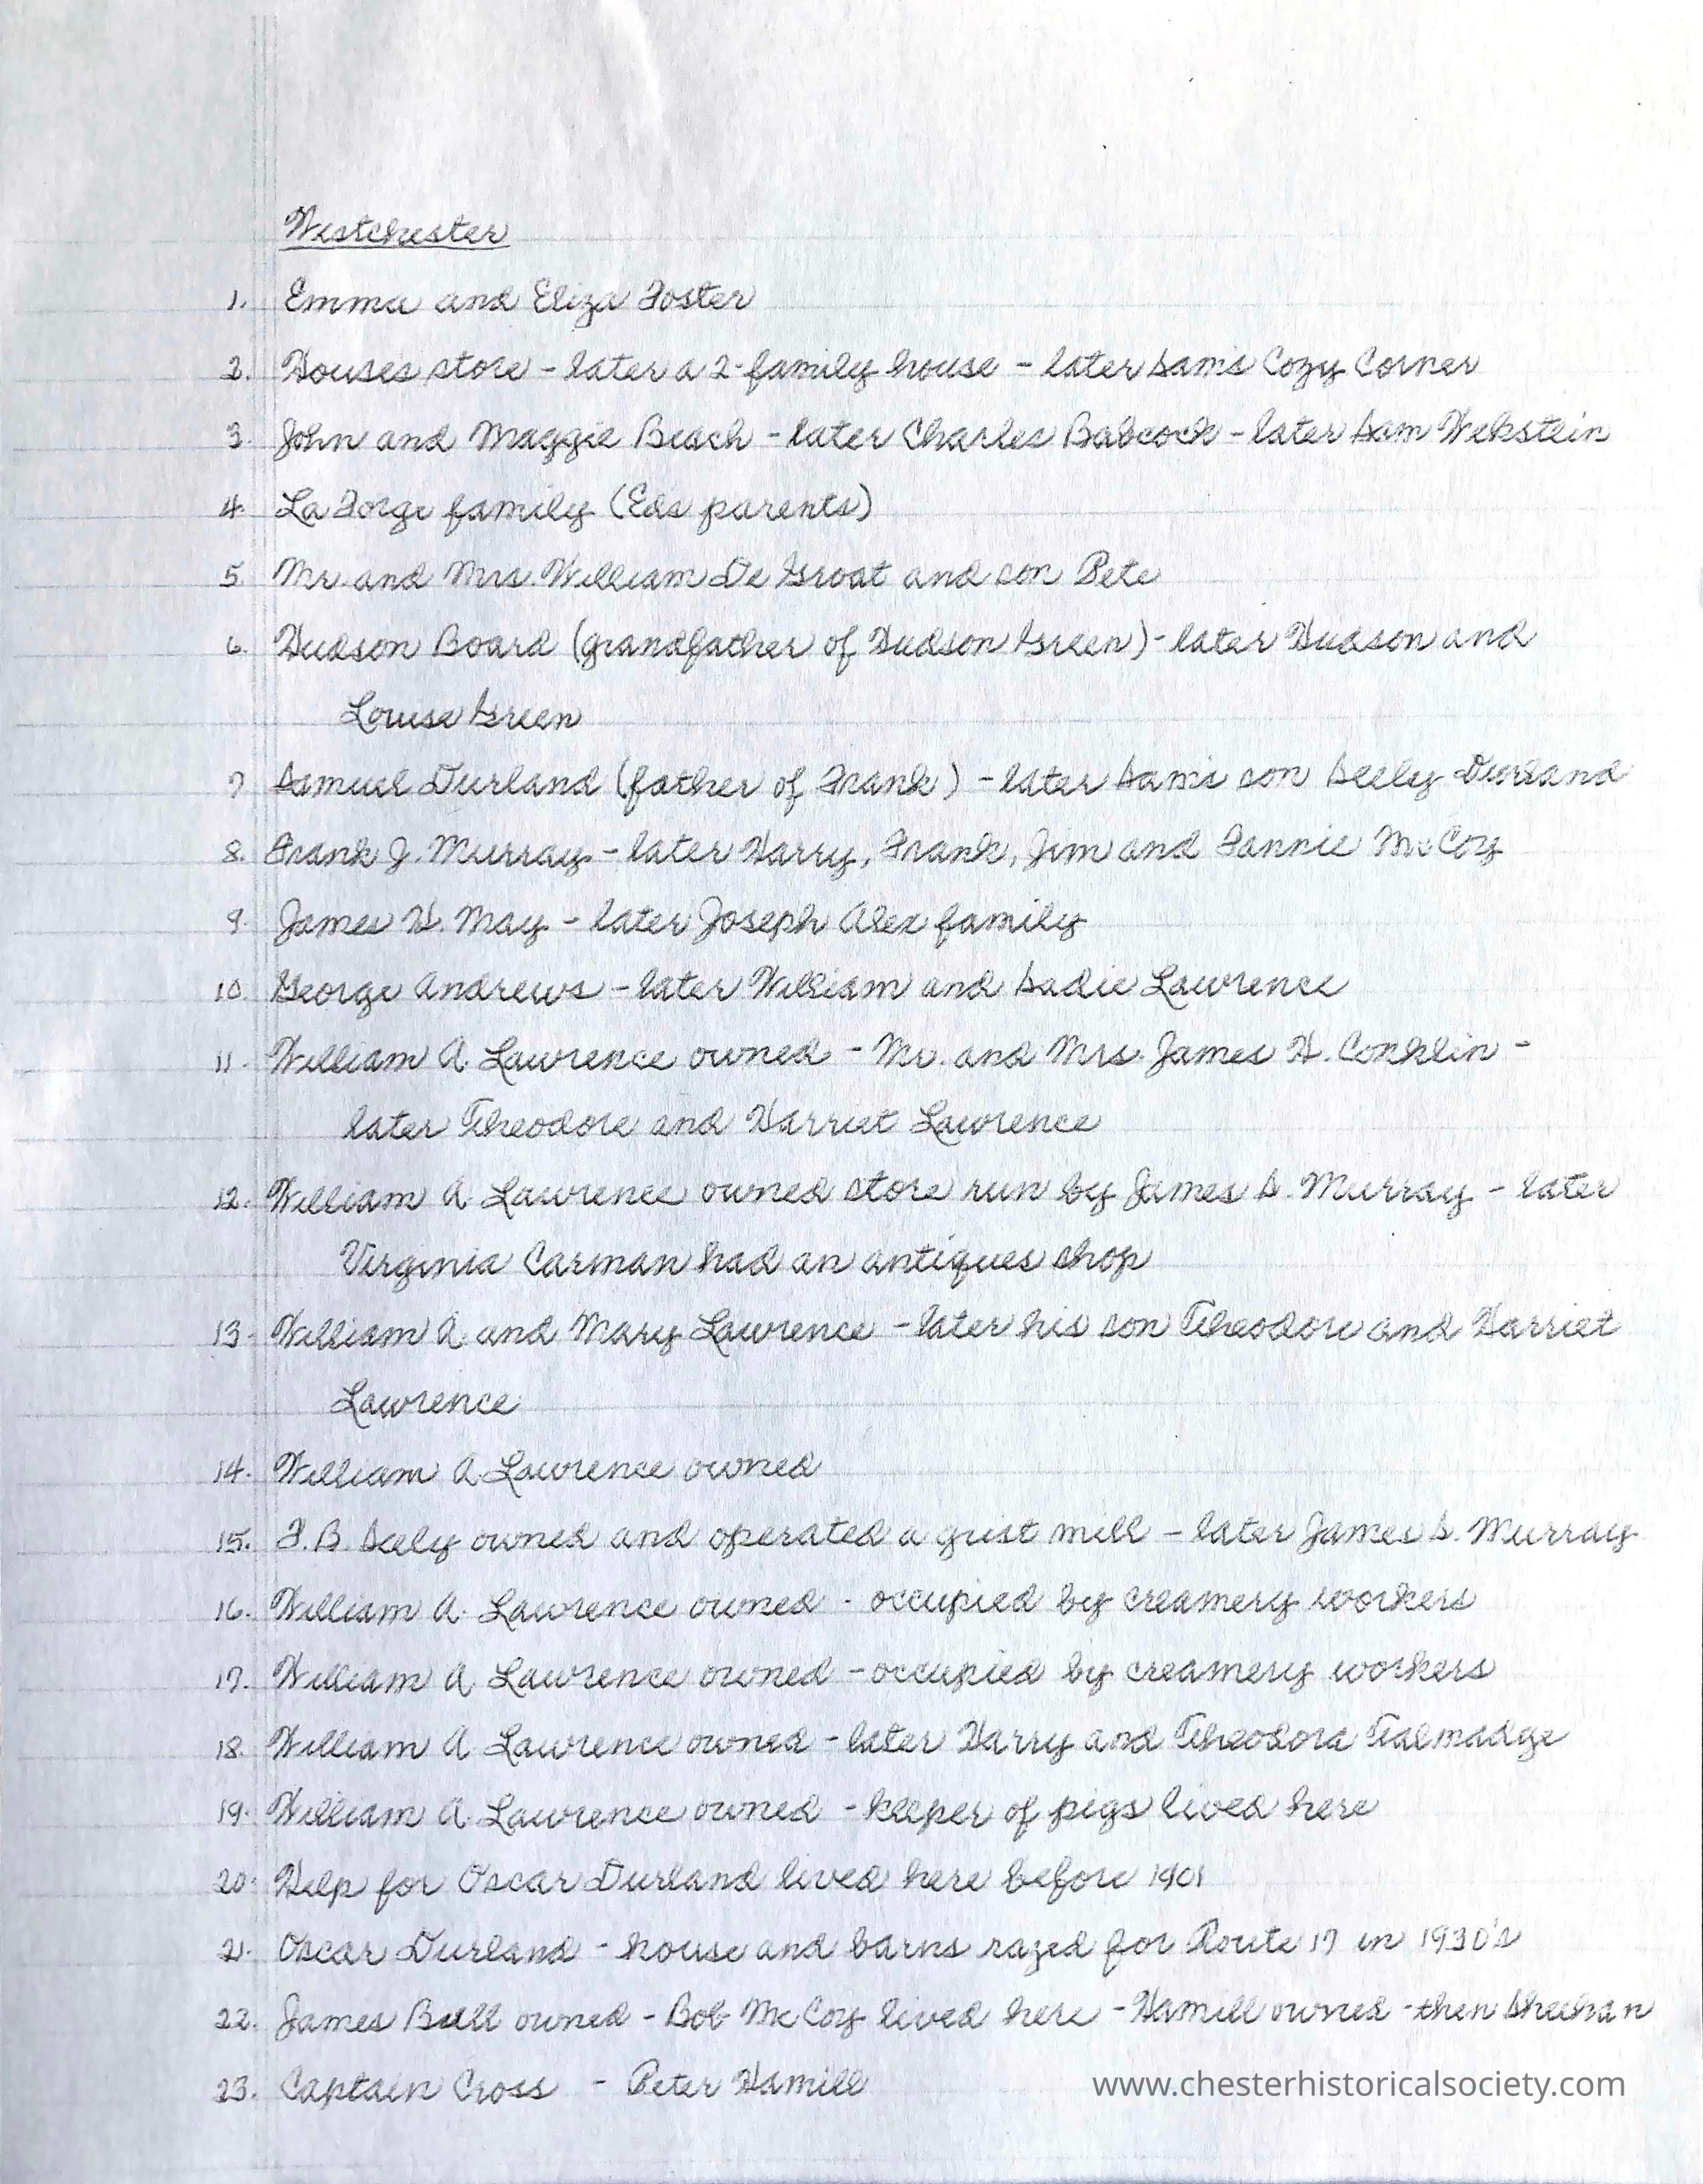 Westchester
1. Emma and Eliza Foster
2. Houses store - later a 2-family house - later Sam's Cozy Corner
3. John and Maggie Beach - later Charles Babcock - later Sam Wekstein
4. La Forge family (Eds parents)
5. Mr. and Mrs. William De Groat and son Pete
6. Hudson Board (grandfather of Hudson Green) - later Hudson and
Louise Green
7. Samuel Durland (father of Frank) - later Sam's son Seely Durland
8. Frank J. Murray - later Harry, Frank, Jim and Fannie McCoy
9. James H. May - later Joseph Alex family
10. George Andrews - later William and Sadie Lawrence
11. William A. Lawrence owned - Mr. and Mrs. James H. Conklin -
later Theodore and Harriet Lawrence
12. William A. Lawrence owned store run by James S. Murray - later
Virginia Carman had an antiques shop
13. William A. and Mary Lawrence - later his son Theodore and Harriet
Lawrence
14. William A. Lawrence owned
15. F. B. Seely owned and operated a grist mill - later James S. Murray
16. William A. Lawrence owned - occupied by creamery workers
17. William A. Lawrence owned - occupied by creamery workers
18. William A. Lawrence owned - later Harry and Theodora Talmadge
19. William A. Lawrence owned - keeper of pigs lived here
20. Help for Oscar Durland lived here before 1901
21. Oscar Durland - house and barns razed for Route 17 in 1930's
22. James Bull owned - Bob McCoy lived here - Hamill owned - then Sheehan
23. Captain Cross - Peter Hamill
www.chesterhistoricalsociety.com